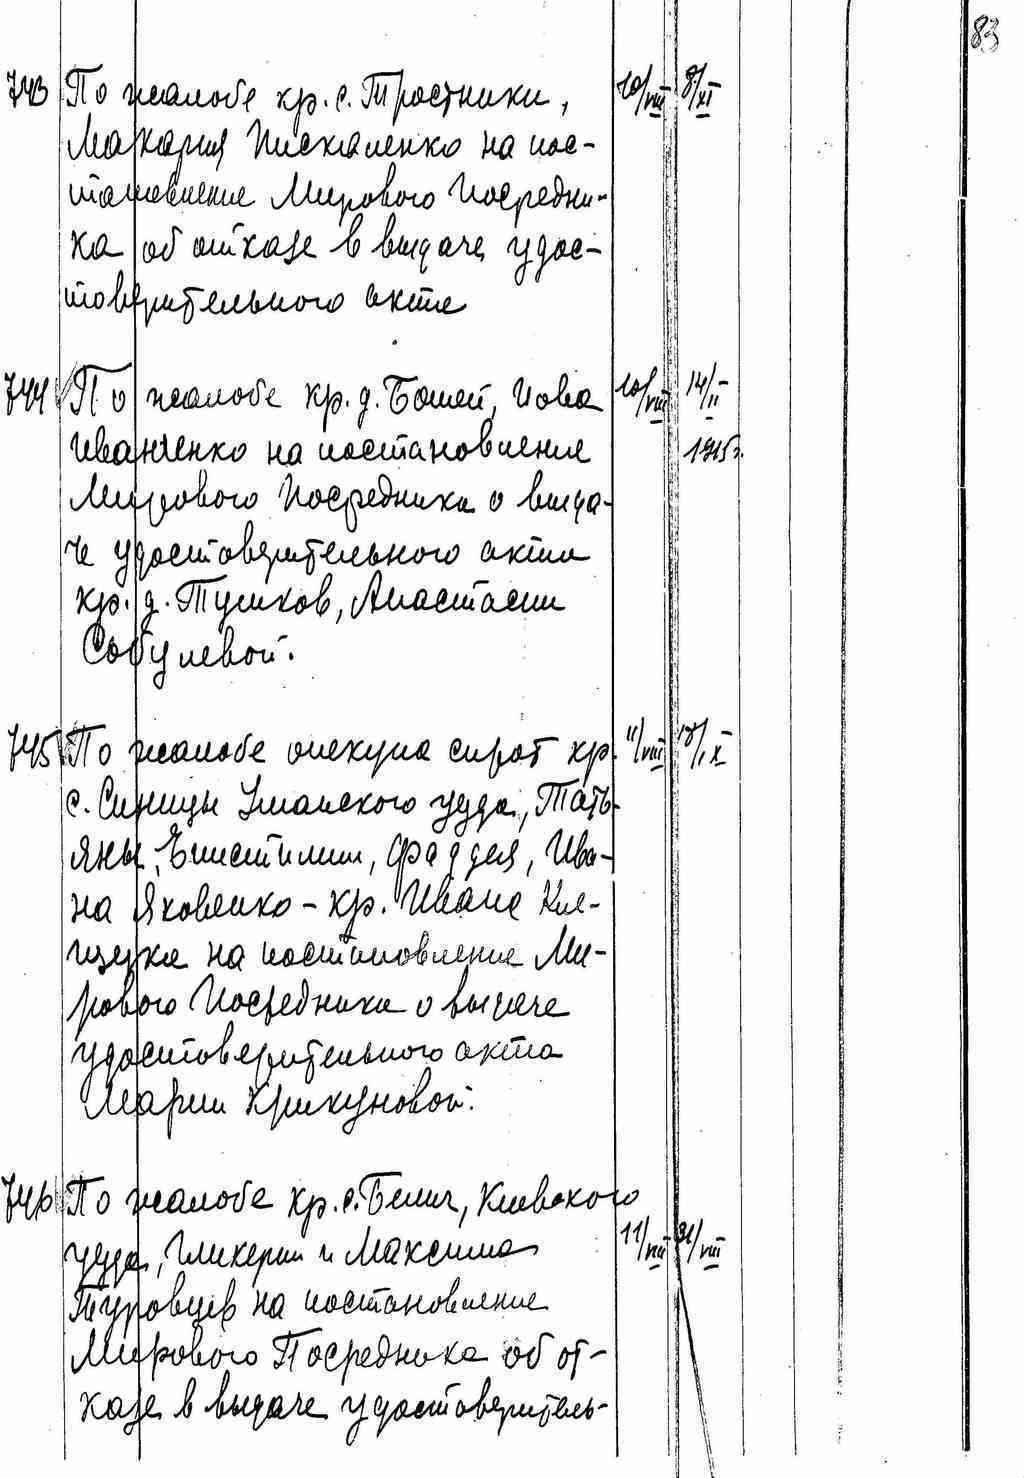 83
743 По жалобе кр. с. Тростинки, 10/VIII 8/XI
Макария Пискаленко на пос-
тановление Мирового Посредни-
ка об отказе в выдаче удос-
товерительного акта
744 По жалобе кр. д. Бошей, Иова 10/VIII 14/II
Иваненко на постановление 1915г.
Мирового Посредника о выда-
че удостоверительного акта
кр. д. Тушков, Анастасии
Собулевой.
745 По жалобе опекуна сирот кр. 11/VIII /IX
с. Синицы Уманского уезда, Тать-
яны, Епистилии, Фаддея, Ива-
на Яковенко - кр. Ивана Кле-
щука на постановление Ми-
рового Посредника о выдаче
удостоверительного акта
Марии Крикуновой.
746 По жалобе кр. с. Белич, Киевского
уезда, Гликерии и Максима 11/VIII 31/VIII
Туровцев на постановление
Мирового Посредника об от-
казе в выдаче удостоверитель-